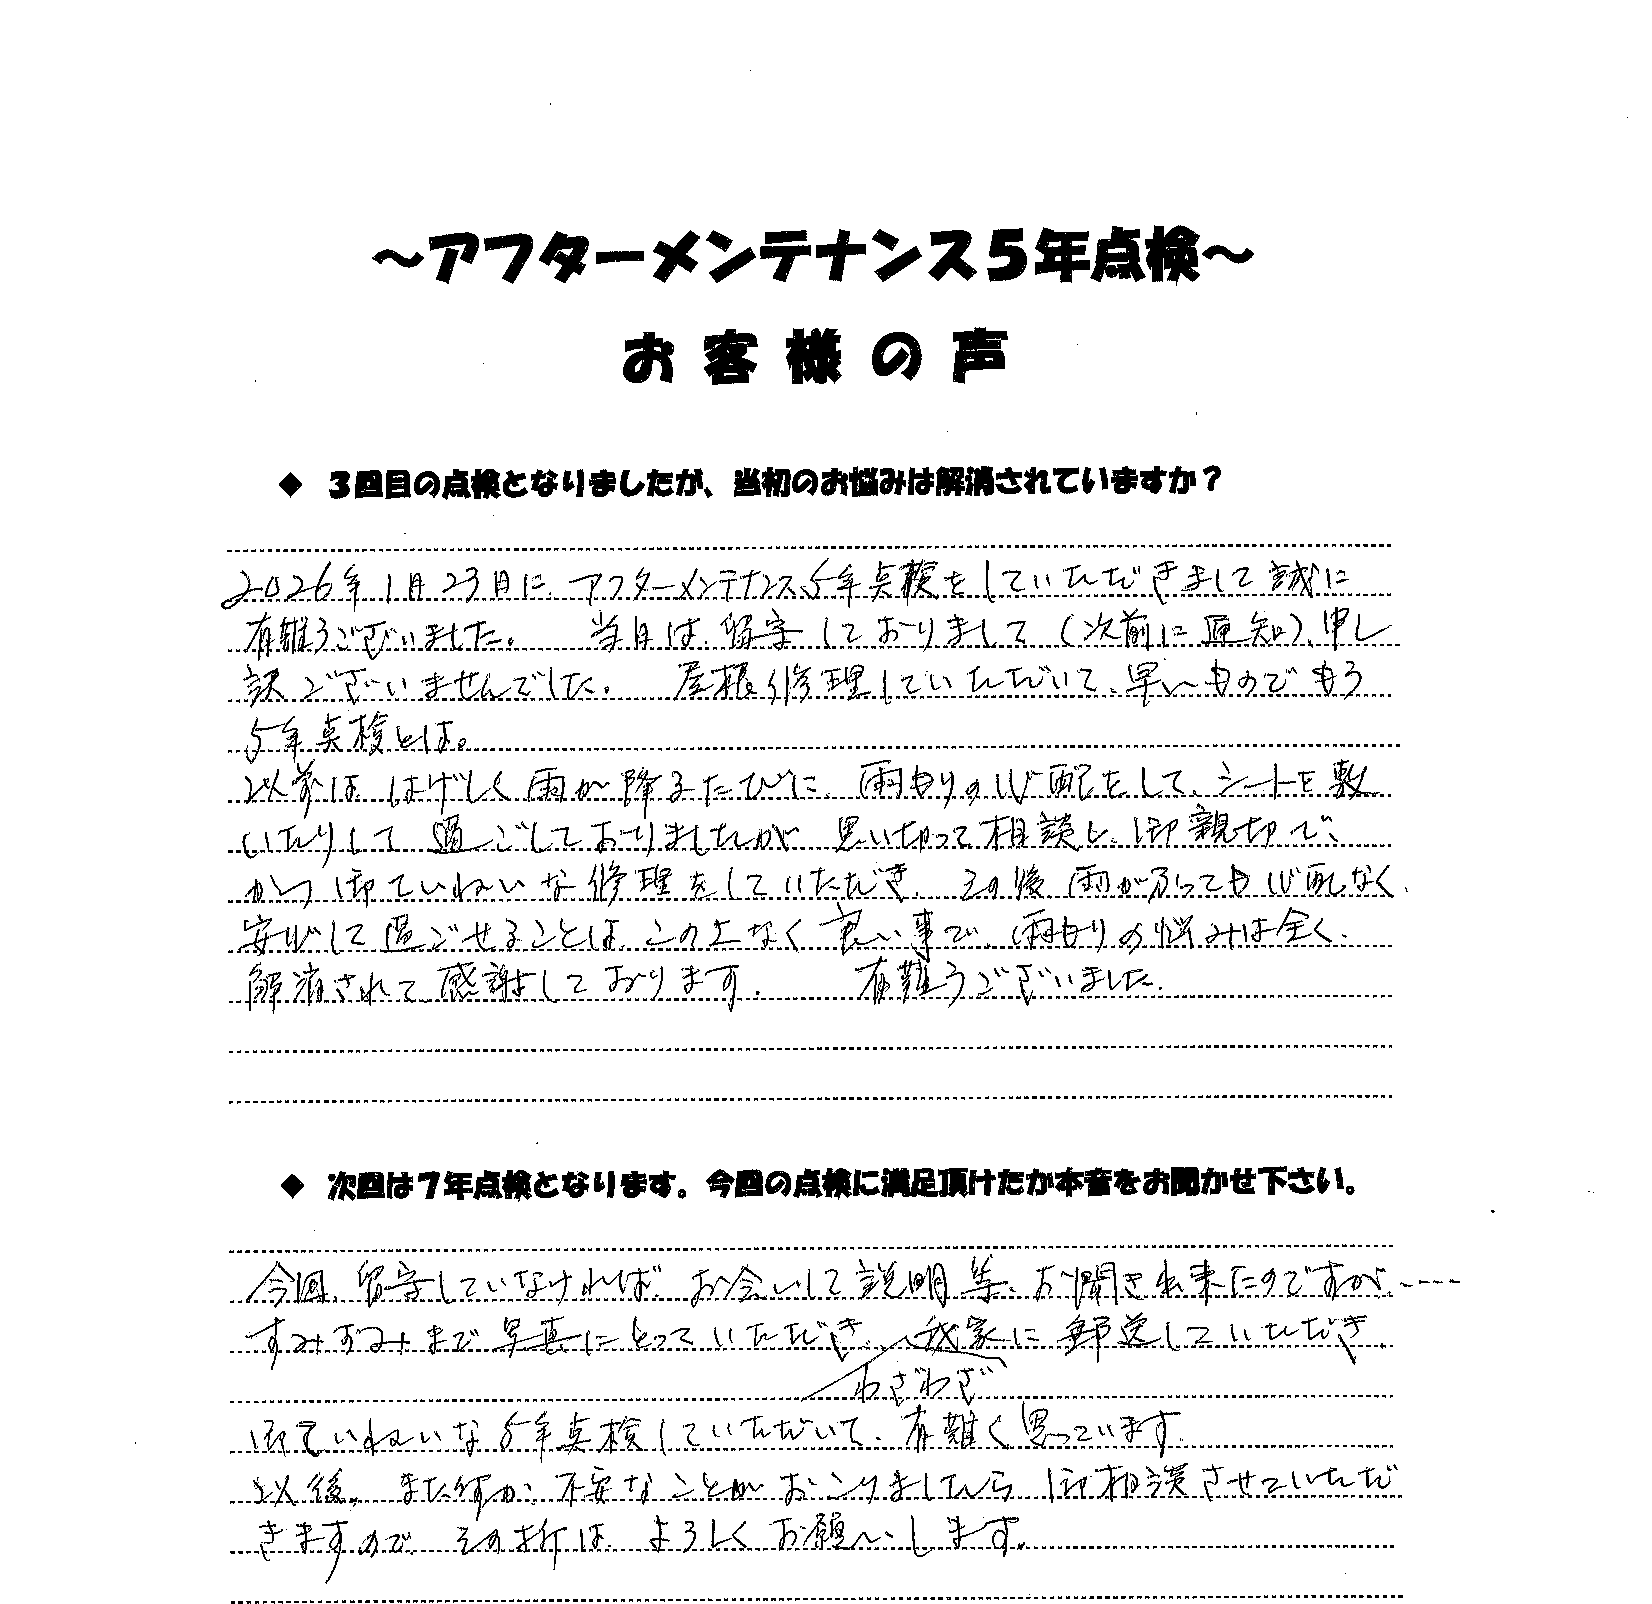 ～アフターメンテナンス５年点検～
お客様の声
◆ ３回目の点検となりましたが、当初のお悩みは解消されていますか？
2026年1月23日に、アフターメンテナンス5年点検をしていただきまして誠に
有難うございました。 当日は、留守しておりまして（次前に通知）、申し
訳ございませんでした。 屋根修理していただいて、早いものでもう
5年点検とは。
以前は、はげしく雨が降るたびに、雨もりの心配をして、シートを敷
いたりして過ごしておりましたが、思い切って相談し、御親切で、
かつ御ていねいな修理をしていただき、その後雨がふっても心配なく、
安心して過ごせることは、この上なく良い事で、雨もりの悩みは全く、
解消されて感謝しております。 有難うございました。
◆ 次回は７年点検となります。今回の点検に満足頂けたか本音をお聞かせ下さい。
今回、留守していなければ、お会いして説明等、お聞き出来たのですが、----
すみずみまで写真にとっていただき、我家に郵送していただき、
わざわざ
御ていねいな5年点検していただいて、有難く思っています。
以後、また何か、不安なことがおこりましたら御相談させていただ
きますので、その折は、よろしくお願いします。